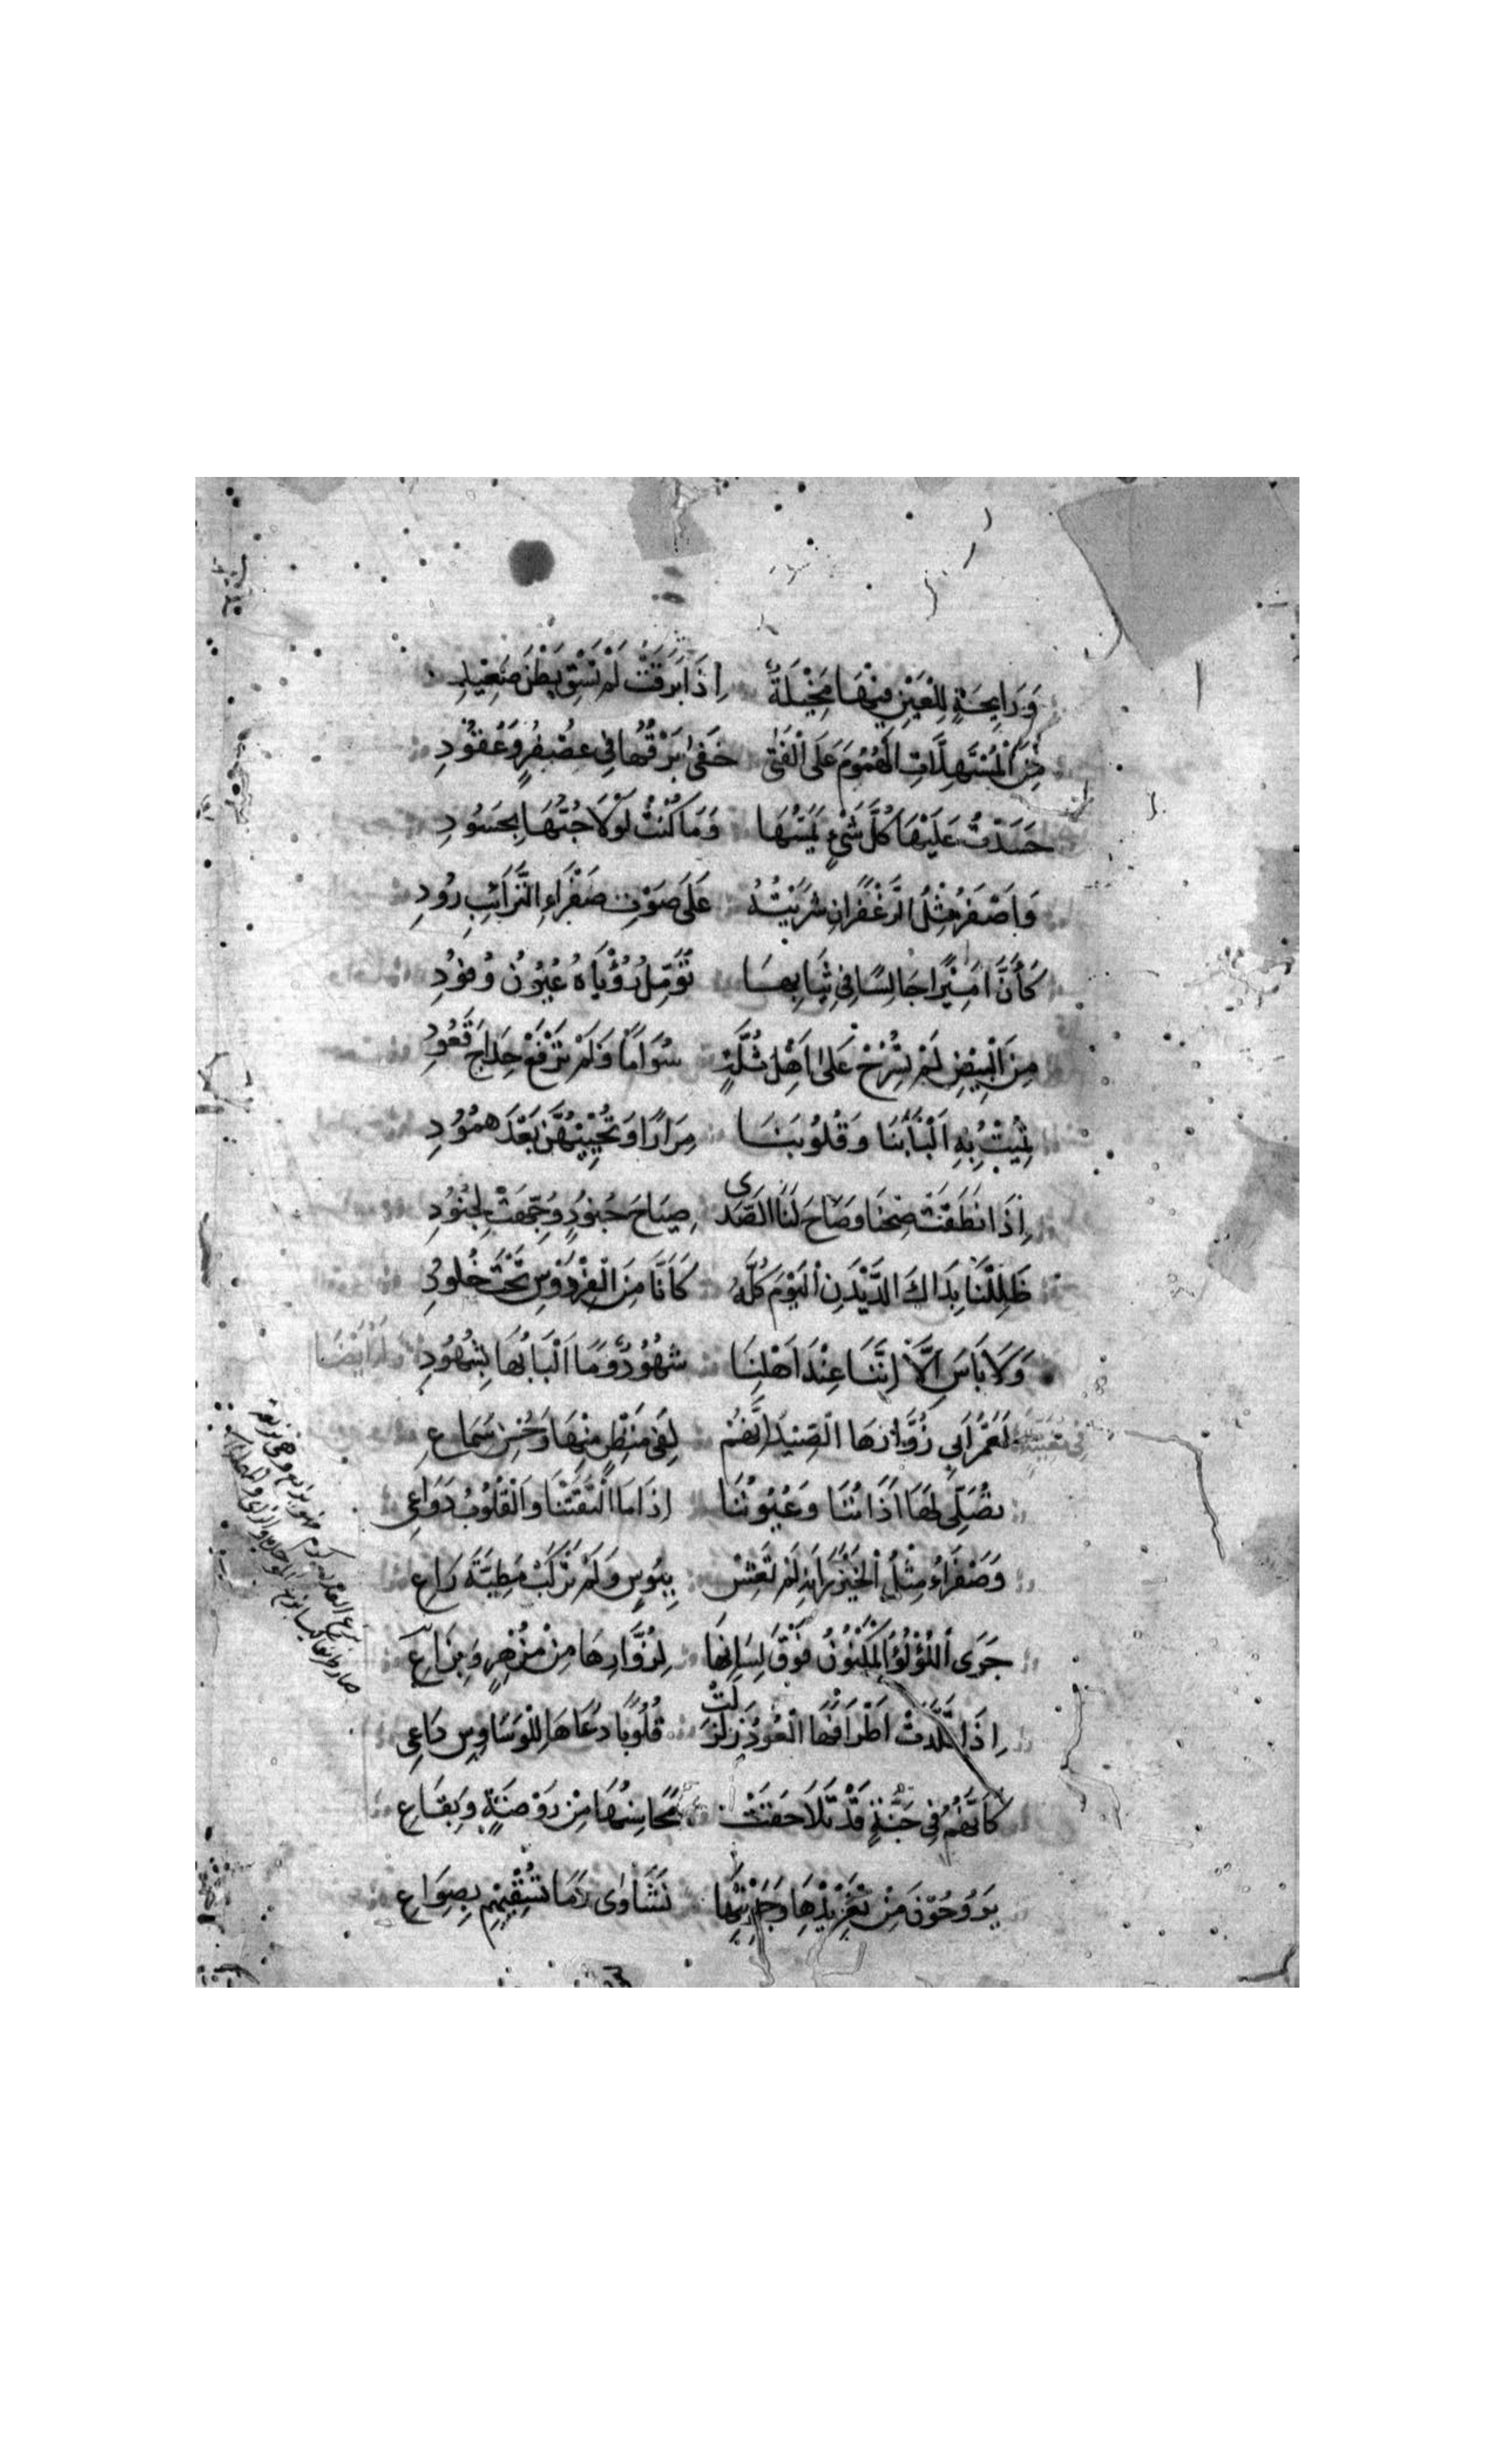 وَرَايِحَةٍ لِلْعَيْنِ فِيهَا مَخِيْلَةٌ إِذَا بَرَقَتْ لَمْ تَسْقِ بَطْنَ صَعِيْدِ
مِنَ الْمُسْتَهِلَّاتِ الْهُمُومَ عَلَى الْفَتَى خَفَى بَرْقُهَا فِي عُصْفُرٍ وَعُقُوْدِ
حَسَدْتُ عَلَيْهَا كُلَّ شَيْءٍ يَمَسُّهَا وَمَا كُنْتُ لَوْلَا حُبُّهَا بِحَسُوْدِ
وَاَصْفَرُ مِثْلُ الزَّعْفَرَانِ شَرِبْتُهُ عَلَى صَوْتِ صَفْرَاءِ التَّرَائِبِ رُودِ
كَأَنَّ اَمِيْرًا جَالِسًا فِي ثِيَابِهَا تُؤَمِّلُ رُؤْيَاهُ عُيُوْنُ وُفُوْدِ
مِنَ الْبِيْضِ لَمْ تَسْرَحْ عَلَى اَهْلِ ثُلَّةٍ سَوَامًا وَلَمْ تَرْفَعْ حِدَاجَ قَعُوْدِ
تُمِيْتُ بِهِ اَلْبَابَنَا وَقُلُوْبَنَا مِرَارًا وَتُحْيِيْهُنَّ بَعْدَ هُمُوْدِ
إِذَا نَطَقَتْ صِحْنَا وَصَاحَ لَنَا الصَّدَى صِيَاحَ جُنُوْدٍ وُجِّهَتْ لِجُنُوْدِ
ظَلِلْنَا بِذَاكَ الدَّيْدَنِ الْيَوْمَ كُلَّهُ كَأَنَّا مِنَ الْفِرْدَوْسِ تَحْتَ خُلُوْدِ
وَلَا بَاسَ اِلَّا اَنَّنَا عِنْدَ اَهْلِنَا شُهُوْدٌ وَمَا اَلْبَابُهَا بِشُهُوْدِ
لَعَمْرُ اَبِي زُوَّارِهَا الصِّيْدِ اِنَّهُمْ لَفِي مَنْظَرٍ مِنْهَا وَحُسْنِ سَمَاعِ
تُصَلِّي لَهَا اٰذَانُنَا وَعُيُوْنُنَا اِذَا مَا الْتَقَيْنَا وَالْقُلُوْبُ دَوَاعِي
وَصَفْرَاءُ مِثْلُ الْخَيْزُرَانَةِ لَمْ تَعِشْ بِبُؤْسٍ وَلَمْ تَرْكَبْ مَطِيَّةَ رَاعِ
جَرَى اللُّؤْلُؤُ الْمَكْنُوْنُ فَوْقَ لِسَانِهَا لِزُوَّارِهَا مِنْ مِزْهَرٍ وَيَرَاعِ
اِذَا قَلَّدَتْ اَطْرَافُهَا الْعُوْدَ زَلْزَلَتْ قُلُوْبًا دَعَاهَا لِلْوَسَاوِسِ دَاعِي
كَاَنَّهُمُ فِي جَنَّةٍ قَدْ تَلَاحَقَتْ مَحَاسِنُهَا مِنْ رَوْضَةٍ وَبِقَاعِ
يَرُوْحُوْنَ مِنْ تَغْرِيْدِهَا وَحَدِيْثِهَا نَشَاوَى وَمَا تَسْقِيْهِمِ بِصُوَاعِ